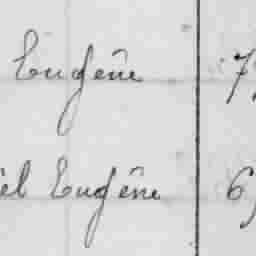 Eugêne 7
el Eugêne 6